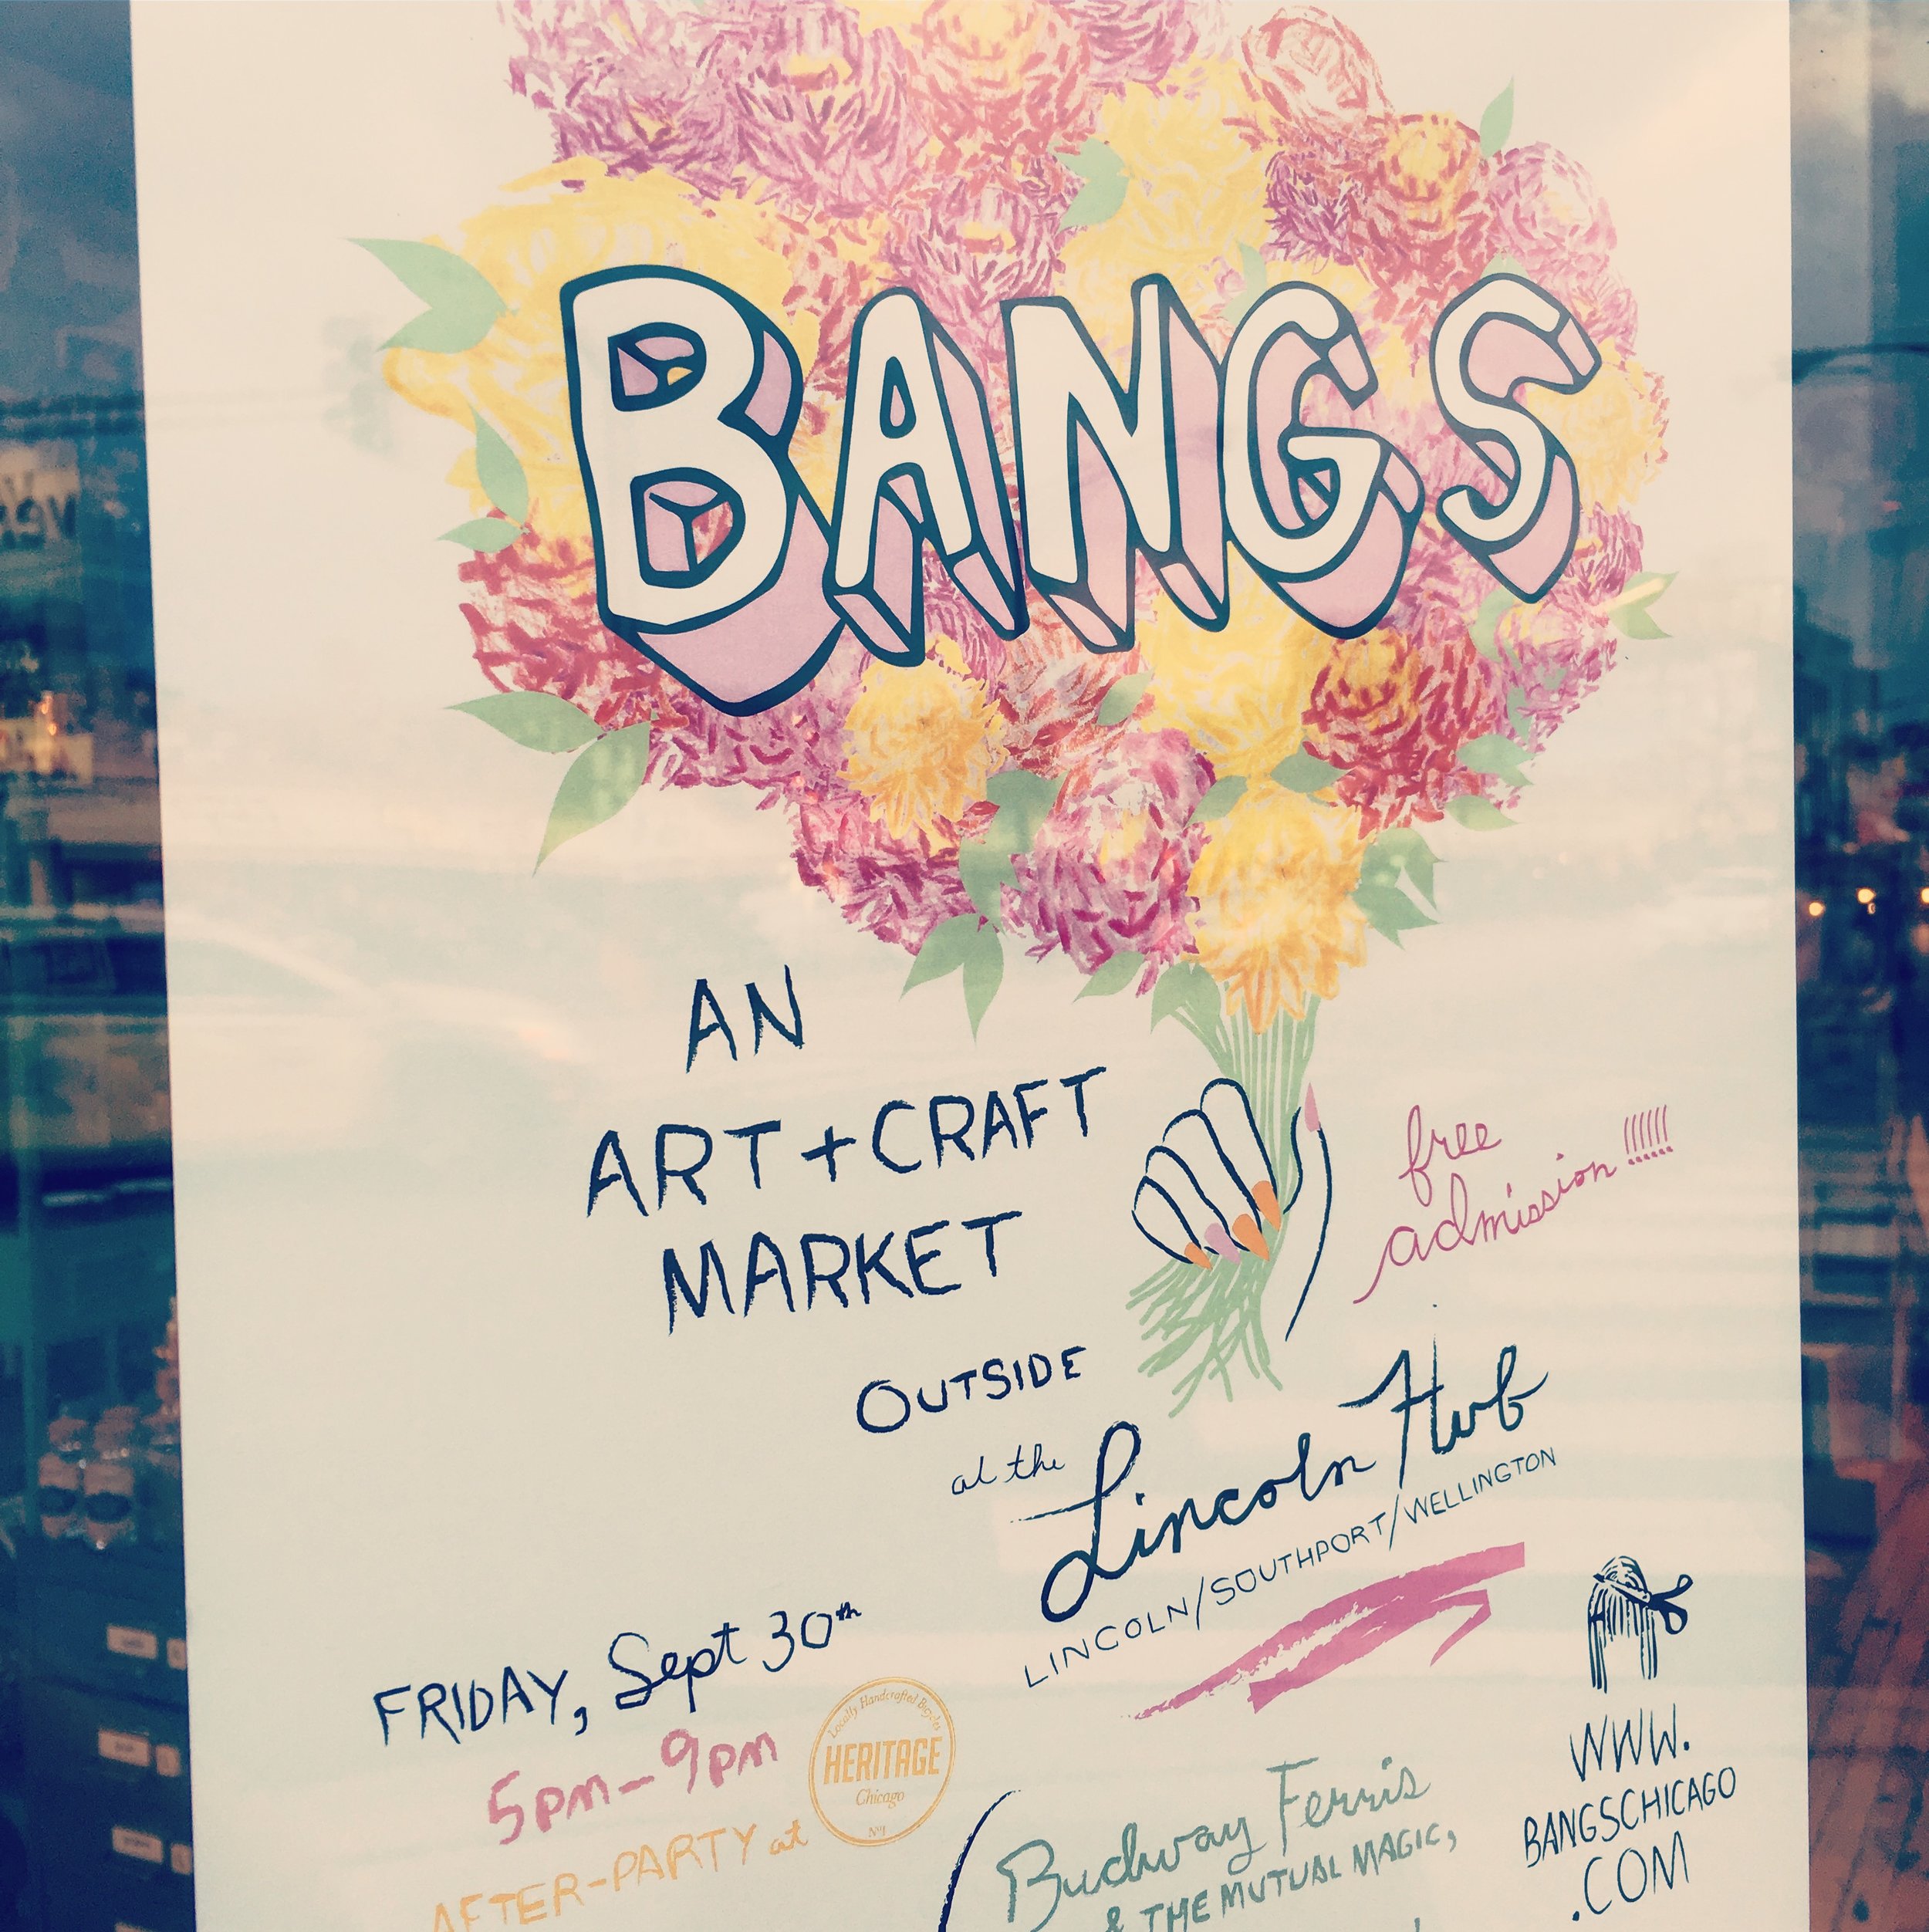 BANGS
AN
ART + CRAFT
MARKET
free
admission !!!!!!
OUTSIDE
at the
Lincoln Hub
LINCOLN/SOUTHPORT/WELLINGTON
FRIDAY, Sept 30th
5pm-9pm
AFTER-PARTY at
Locally Handcrafted Bicycles
HERITAGE
Chicago
Nº1
Budway Ferris
& THE MUTUAL MAGIC,
WWW.
BANGSCHICAGO
.COM